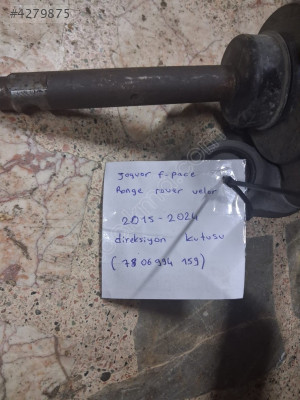 #4279875
Jaguar f-pace
Range rover velar
2015-2024
direksiyon kutusu
(78 06 994 159)